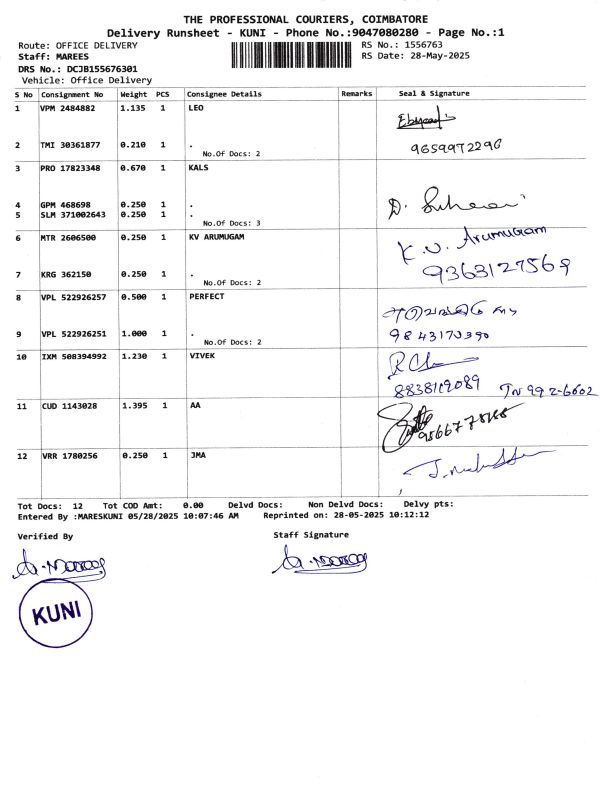 THE PROFESSIONAL COURIERS, COIMBATORE
Delivery Runsheet - KUNI - Phone No.:9047080280 - Page No.:1
Route: OFFICE DELIVERY RS No.: 1556763
Staff: MAREES RS Date: 28-May-2025
DRS No.: DCJB155676301
Vehicle: Office Delivery
S No Consignment No Weight PCS Consignee Details Remarks Seal & Signature
1 VPM 2484882 1.135 1 LEO
2 TMI 30361877 0.210 1 . 9659972296
No.Of Docs: 2
3 PRO 17823348 0.670 1 KALS
4 GPM 468698 0.250 1 .
5 SLM 371002643 0.250 1 .
No.Of Docs: 3
6 MTR 2606500 0.250 1 KV ARUMUGAM K.V. Arumugam
7 KRG 362150 0.250 1 . 9363127569
No.Of Docs: 2
8 VPL 522926257 0.500 1 PERFECT
9 VPL 522926251 1.000 1 . 9843173390
No.Of Docs: 2
10 IXM 508394992 1.230 1 VIVEK
TN 99 Z-6602
11 CUD 1143028 1.395 1 AA
12 VRR 1780256 0.250 1 JMA
Tot Docs: 12 Tot COD Amt: 0.00 Delvd Docs: Non Delvd Docs: Delvy pts:
Entered By :MARESKUNI 05/28/2025 10:07:46 AM Reprinted on: 28-05-2025 10:12:12
Verified By Staff Signature
KUNI